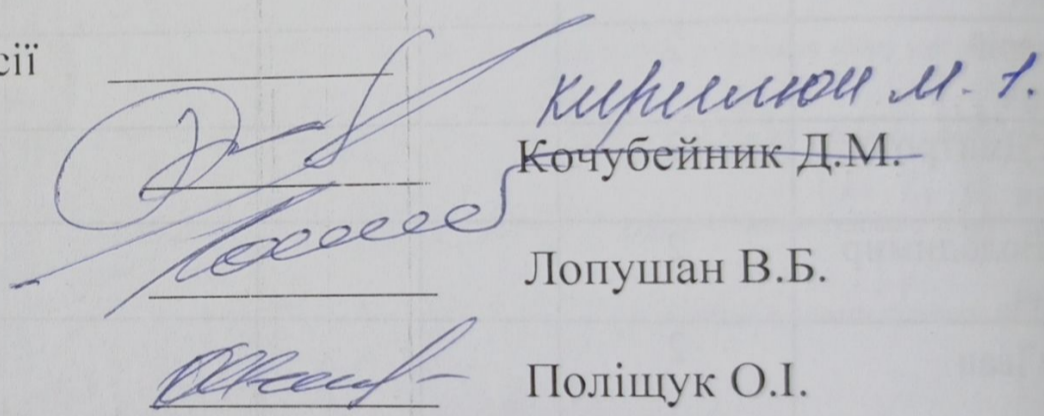 сії
Кирилюк М. І.
Кочубейник Д.М.
Лопушан В.Б.
Поліщук О.І.